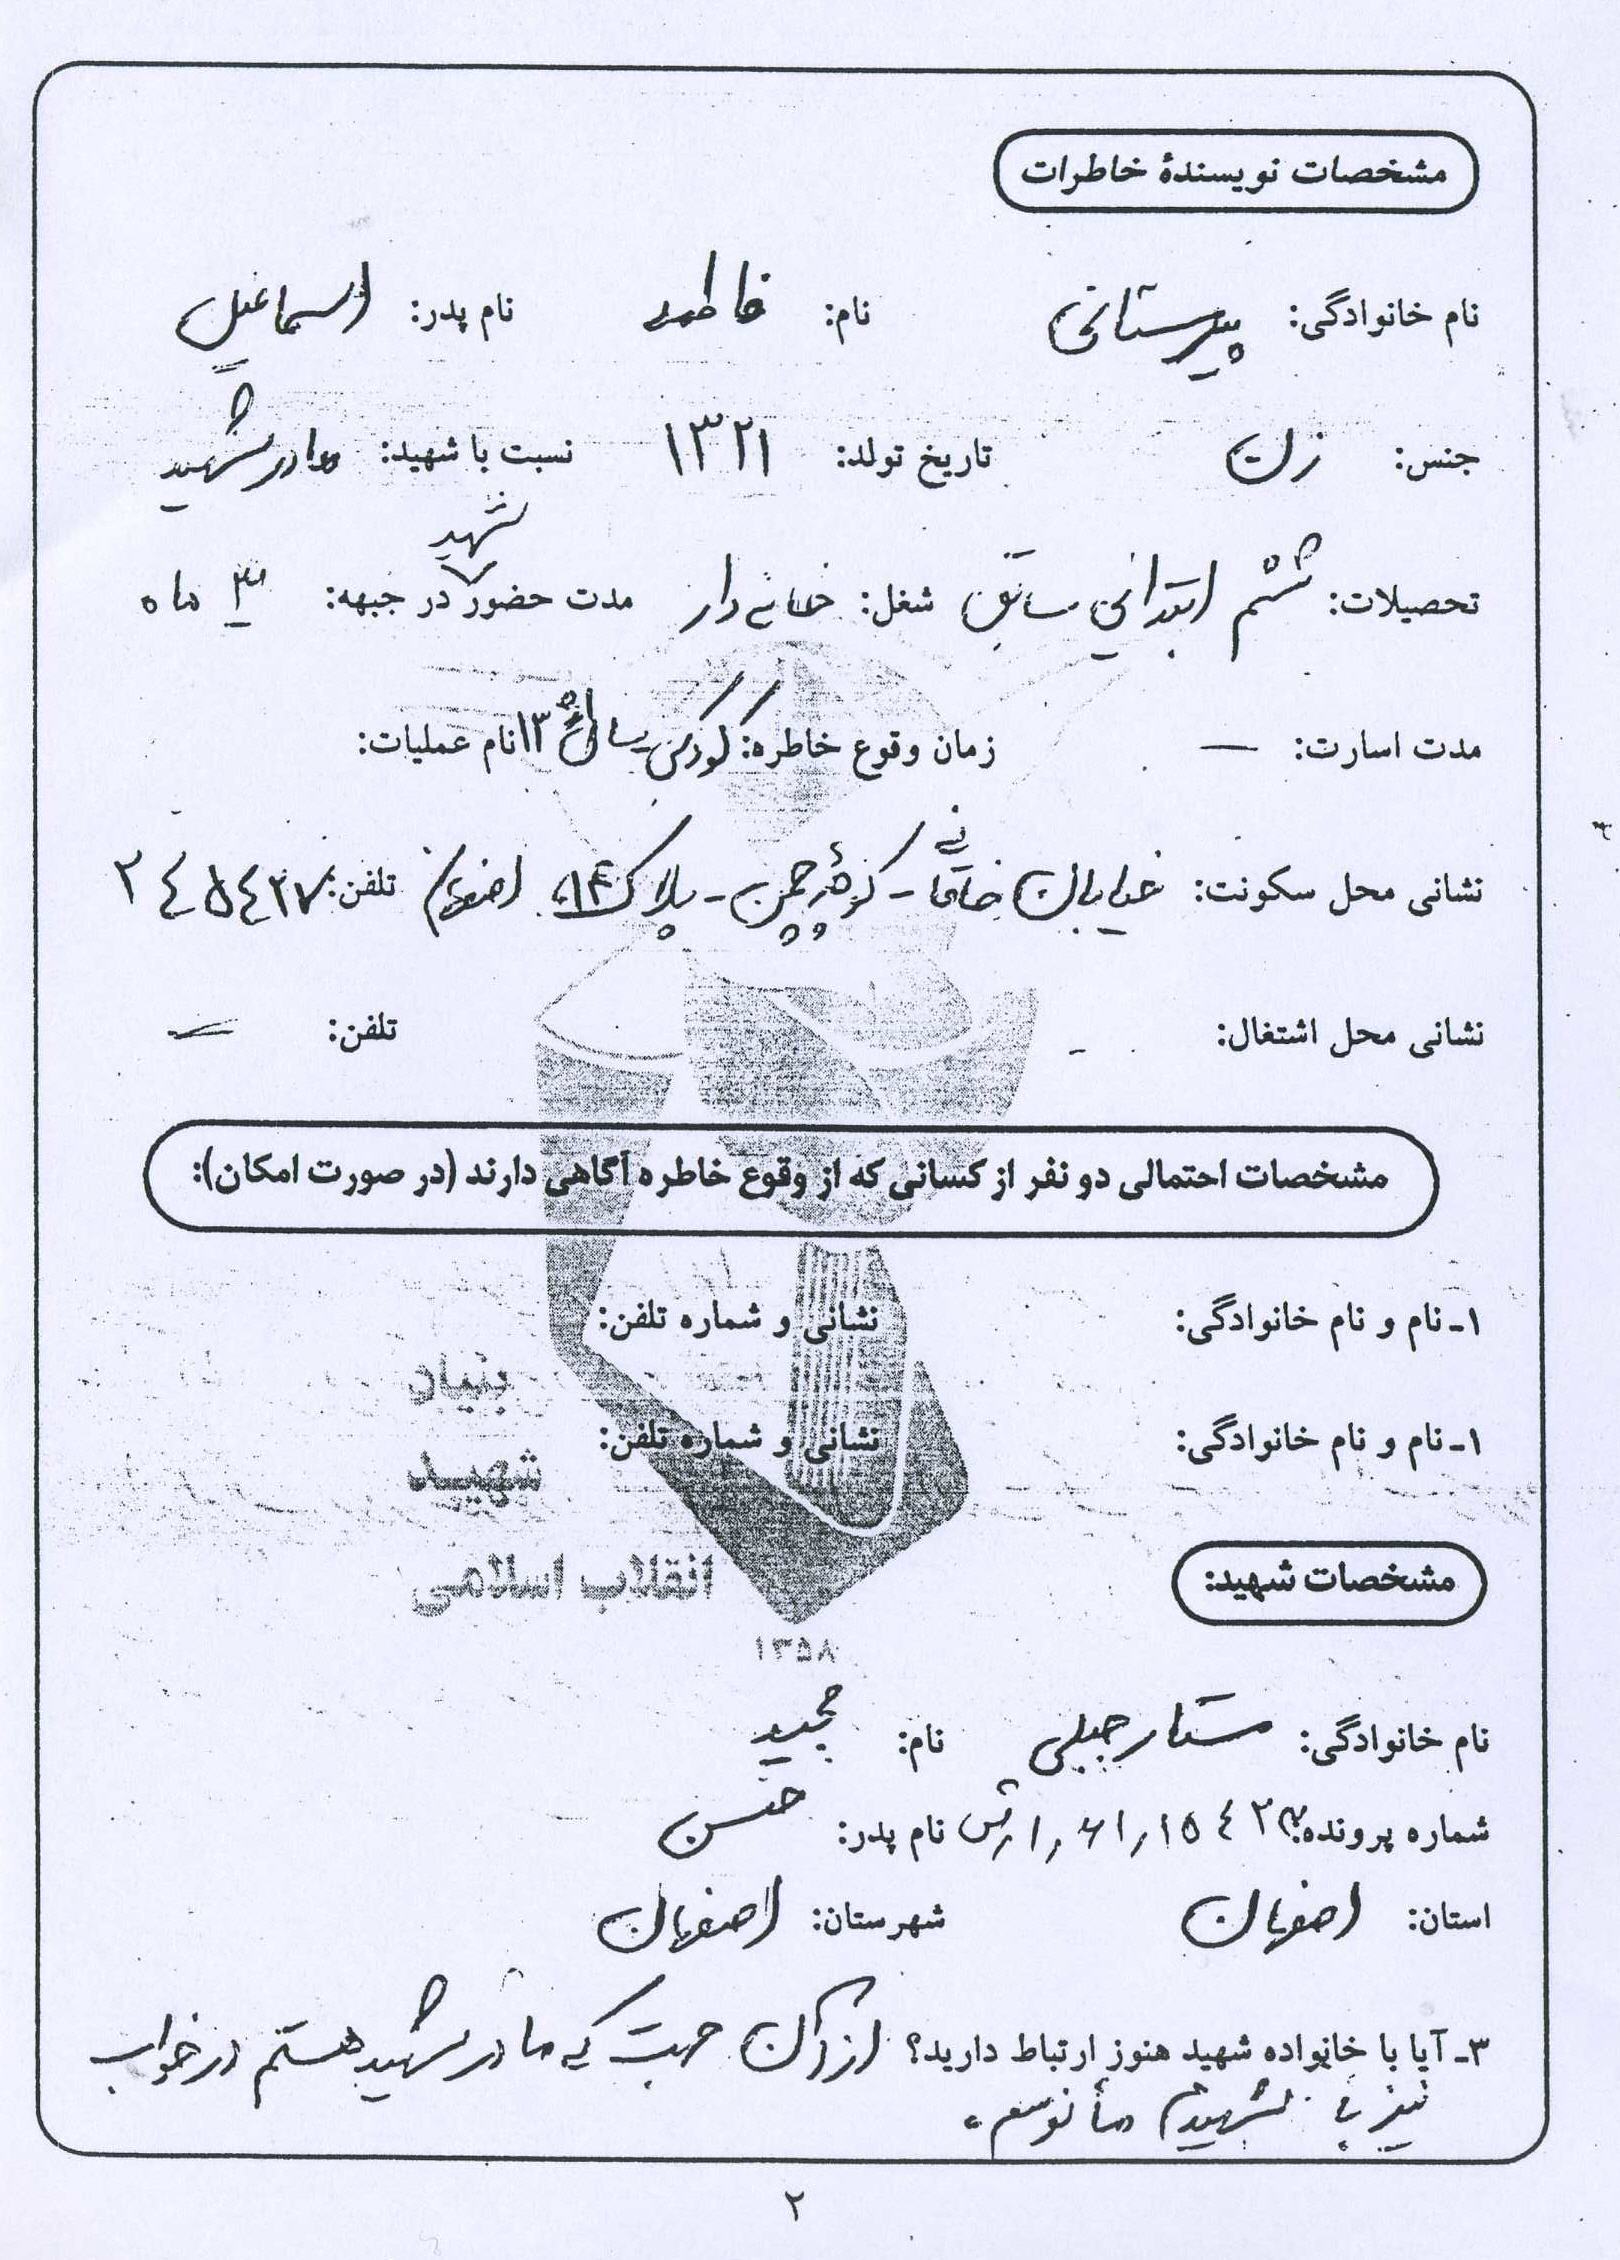 مشخصات نویسندهٔ خاطرات
نام خانوادگی: پیرستانی نام: فاطمه نام پدر: اسماعیل
جنس: زن تاریخ تولد: ۱۳۲۱ نسبت با شهید: مادر شهید
شهید
تحصیلات: ششم ابتدائی سابق شغل: خانه دار مدت حضور در جبهه: ۳ ماه
مدت اسارت: — زمان وقوع خاطره: سال نام عملیات:
نشانی محل سکونت: خیابان - - پلاک اصفهان تلفن: ۲۴۵۴۲۷
نشانی محل اشتغال: - تلفن: —
مشخصات احتمالی دو نفر از کسانی که از وقوع خاطره آگاهی دارند (در صورت امکان):
۱ـ نام و نام خانوادگی: نشانی و شماره تلفن:
۱ـ نام و نام خانوادگی: نشانی و شماره تلفن:
بنیاد
شهید
انقلاب اسلامی
۱۳۵۸
مشخصات شهید:
نام خانوادگی: ستار جبلی نام: مجید
شماره پرونده: نام پدر: حسن
استان: اصفهان شهرستان: اصفهان
۳ـ آیا با خانواده شهید هنوز ارتباط دارید؟ از آن جهت که مادر شهید هستم در خواب
نیز با شهیدم مأنوسم.
۲